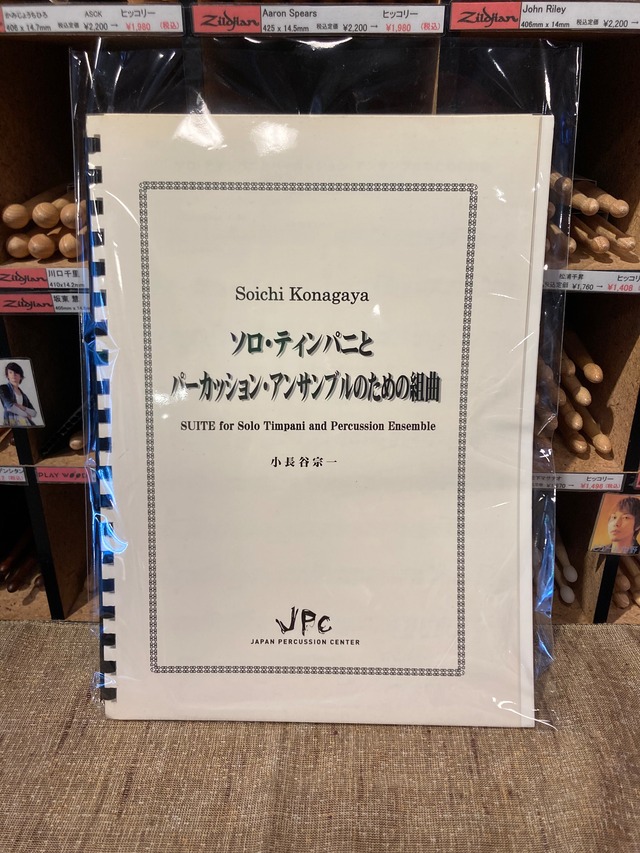 かみじょうちひろ ASCK ヒッコリー
406 x 14.7mm 税込定価 ¥2,200 → ¥1,980 (税込)
Zildjian
Aaron Spears ヒッコリー
425 x 14.5mm 税込定価 ¥2,200 → ¥1,980 (税込)
Zildjian
John Riley
406mm x 14mm 税込定価 ¥2,200 →
Zildjian
川口千里
410x14.2mm
Zildjian
松浦千昇 ヒッコリ
¥1,760 → ¥1,408
ヒッコリー
Soichi Konagaya
ソロ・ティンパニと
パーカッション・アンサンブルのための組曲
SUITE for Solo Timpani and Percussion Ensemble
小長谷宗一
JPC
JAPAN PERCUSSION CENTER